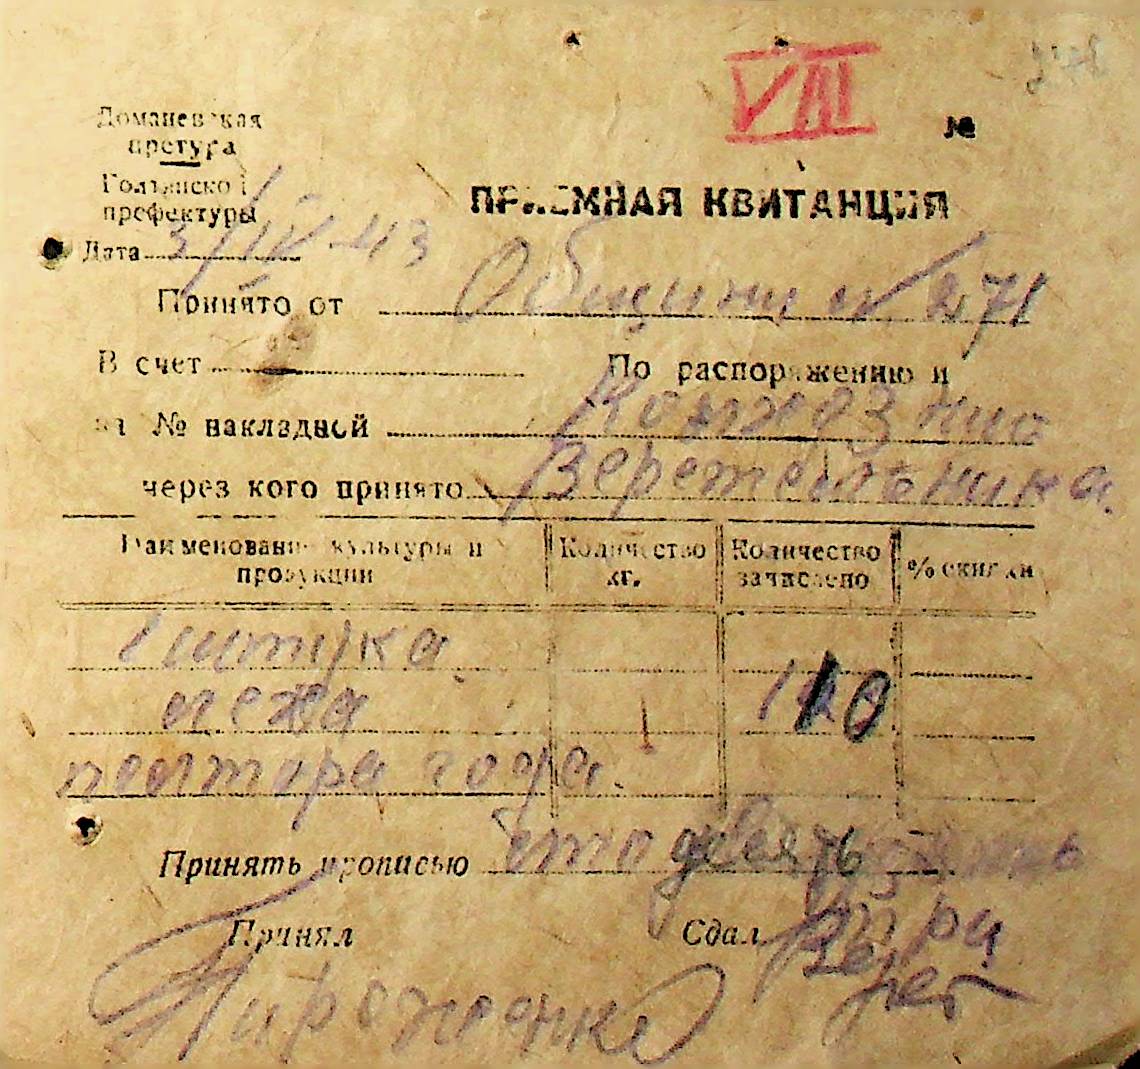 VIII
№
Доманевская
претура
Голтянской
префектуры
ПРИЕМНАЯ КВИТАНЦИЯ
Дата 3/IV-43
Принято от Общины № 271
В счет По распоряжению и
на № накладной
через кого принято Веретельника.
Наименование культуры и продукции
Количество кг.
Количество зачислено
% скидки
1 штука
полтора года.
Принять прописью сто
Принял
Сдал